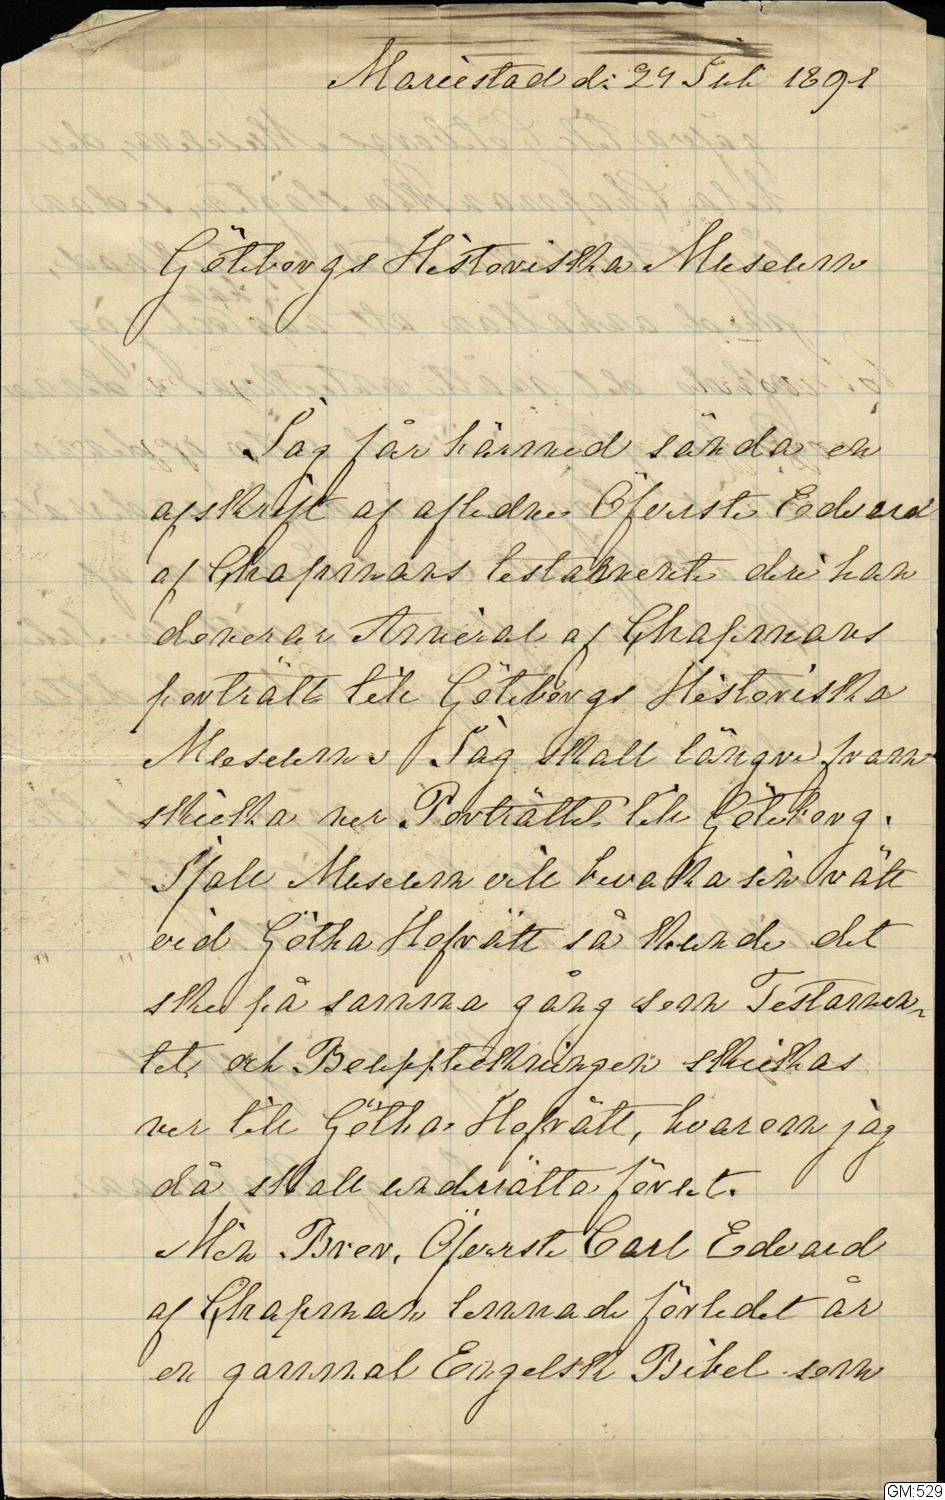 Mariestad d: 24 Juli 1891
Göteborgs Historiska Museum
Jag får härmed sända en
afskrift af aflidne Öfverste Edvard
af Chapmans testamente deri han
donerar Amiral af Chapmans
porträtt till Göteborgs Historiska
Museum. Jag skall längre fram
skicka ner Porträttet till Göteborg.
Ifall Museum vill bevaka sin rätt
vid Götha Hofrätt så kunde det
ske på samma gång som Testamen-
tet och Bouppteckningen skickas
ner till Götha Hofrätt, hvarom jag
då skall underrätta förut.
Min Bror, Öfverste Carl Edvard
af Chapman lemnade förledet år
en gammal Engelsk Bibel som
GM:529